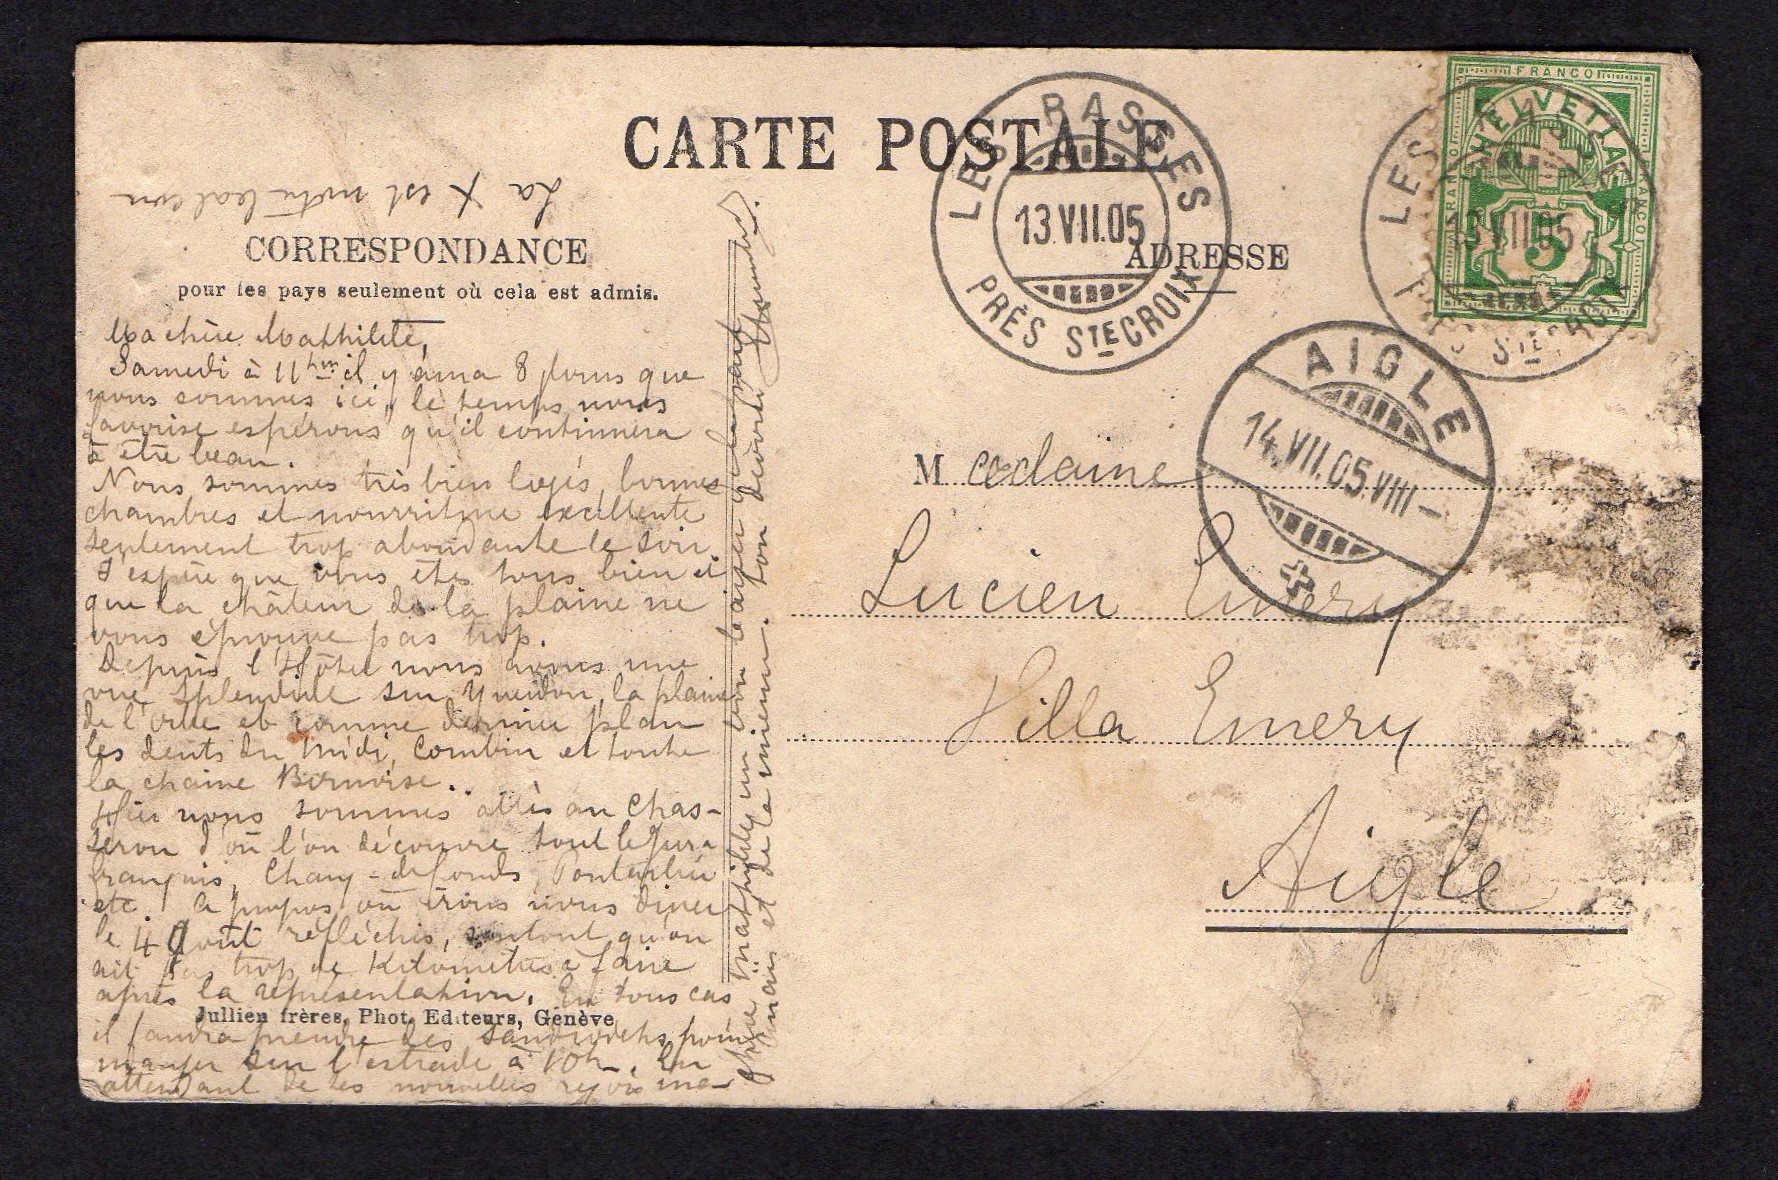 CARTE POSTALE
La X est notre balcon
CORRESPONDANCE
pour les pays seulement où cela est admis.
ADRESSE
Ma chère Mathilde,
Samedi à 11 il y aura 8 jours que
nous sommes ici, le temps nous
favorise espérons qu'il continuera
à être beau.
Nous sommes très bien logés, bonnes
chambres et nourriture excellente
seulement trop abondante le soir.
J'espère que vous êtes tous bien et
que la chaleur de la plaine ne
vous éprouve pas trop.
Depuis l'Hôtel nous avons une
vue splendide sur Yverdon, la plaine
de l'Orbe et comme dernier plan
les dents du Midi, Combin et toute
la chaine Bernoise.
Hier nous sommes allés au Chas-
seron d'où l'on découvre tout le Jura
français, Chaux-de fonds, Pontarlier
etc. A propos où irons nous diner
le 4 Août réfléchis, surtout qu'on
ait pas trop de Kilomètres à faire
après la représentation. En tous cas
il faudra prendre des sandwichs pour
manger sur l'estrade à 10h. En
attendant de tes nouvelles reçois ma
chère Mathilde un bon baiser
amais et de la mienne. ton dévoué
Jullien frères, Phot. Editeurs, Genève
LES RASSES
13.VII.05
PRÈS STE CROIX
FRANCO
HELVETIA
FRANCO
FRANCO
5
LES RASSES
13.VII.05
PRÈS STE CROIX
AIGLE
14.VII.05.VIII-
M adame
Lucien Emery
Villa Emery
Aigle